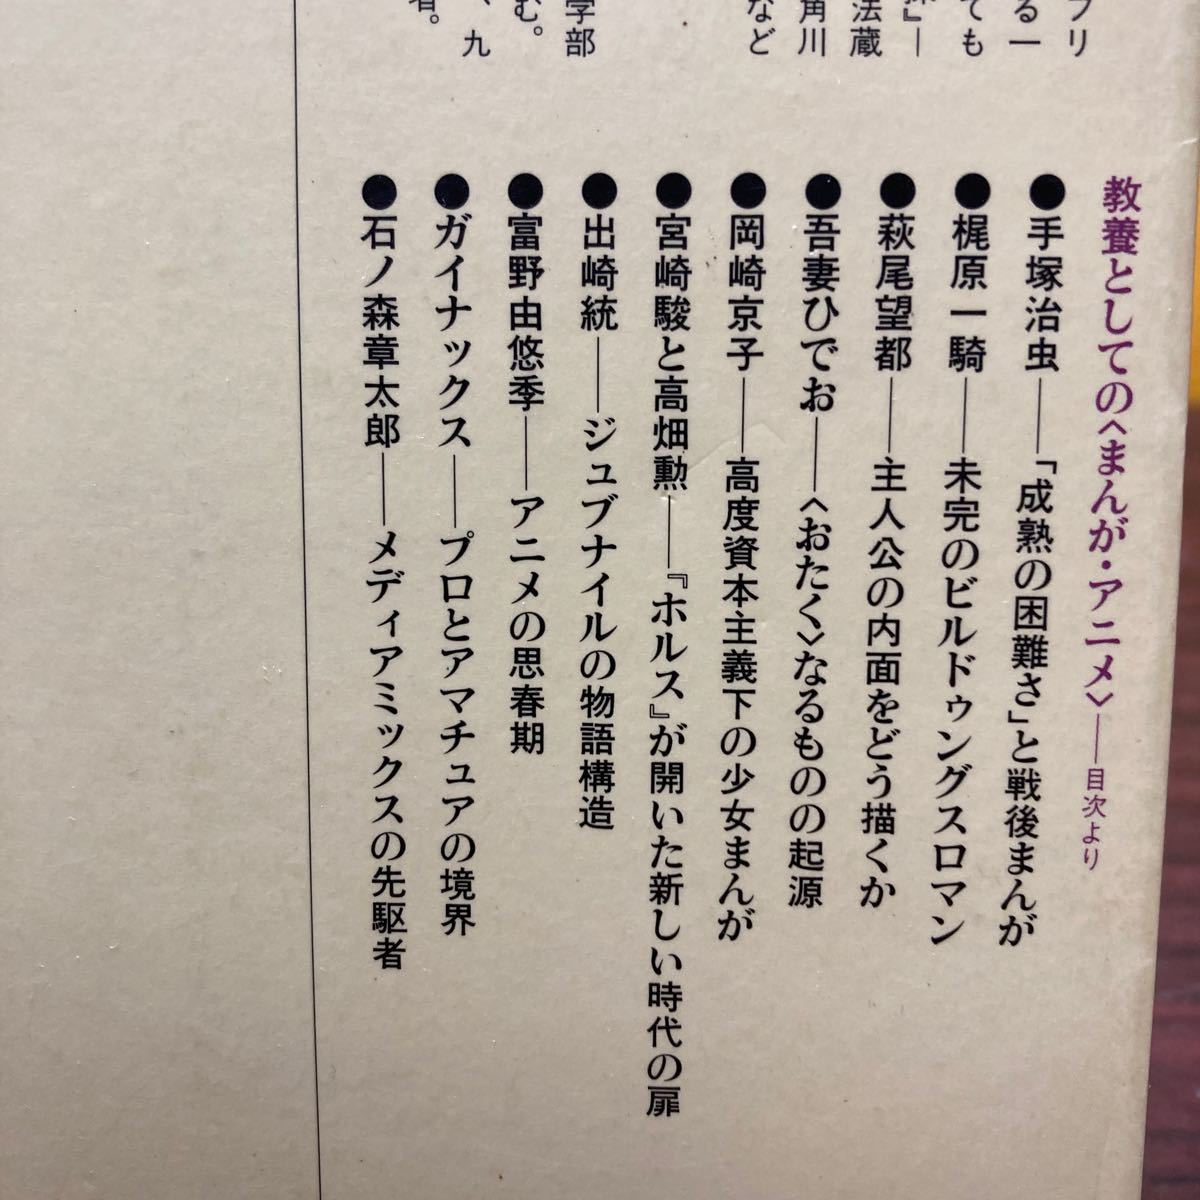 フリ
る一
ても
』—
法蔵
角川
など
学部
む。
、九
者。
教養としての〈まんが・アニメ〉——目次より
●手塚治虫——「成熟の困難さ」と戦後まんが
●梶原一騎——未完のビルドゥングスロマン
●萩尾望都——主人公の内面をどう描くか
●吾妻ひでお——〈おたく〉なるものの起源
●岡崎京子——高度資本主義下の少女まんが
●宮崎駿と高畑勲——『ホルス』が開いた新しい時代の扉
●出崎統——ジュブナイルの物語構造
●富野由悠季——アニメの思春期
●ガイナックス——プロとアマチュアの境界
●石ノ森章太郎——メディアミックスの先駆者